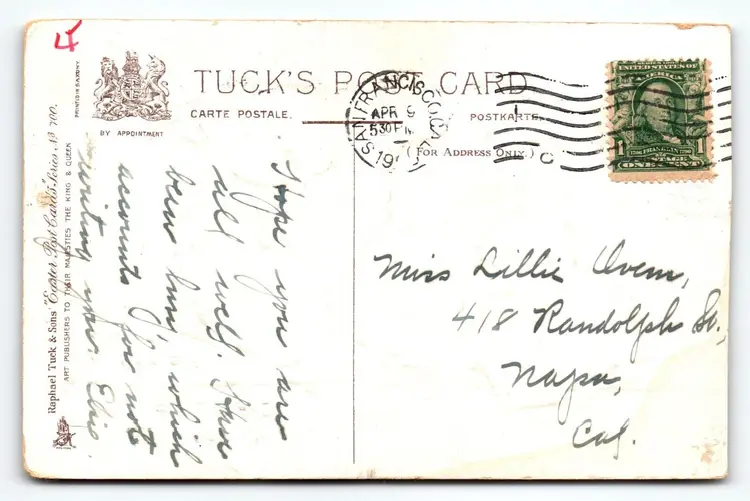 4
TUCK'S POST CARD
CARTE POSTALE.
POSTKARTE.
(FOR ADDRESS ONLY.)
BY APPOINTMENT
PRINTED IN SAXONY.
SAN FRANCISCO, CAL.
APR 9
530 PM
19
UNITED STATES OF
AMERICA
1 FRANKLIN 1
POSTAGE
ONE CENT
C
Raphael Tuck & Sons' "Easter" Post Cards" Series No 700.
ART PUBLISHERS TO THEIR MAJESTIES THE KING & QUEEN
Hope you are
all well. I have
been busy which
accounts for not
writing you. Elsie.
Miss Lillie Oven,
418 Randolph St.,
Napa,
Cal.